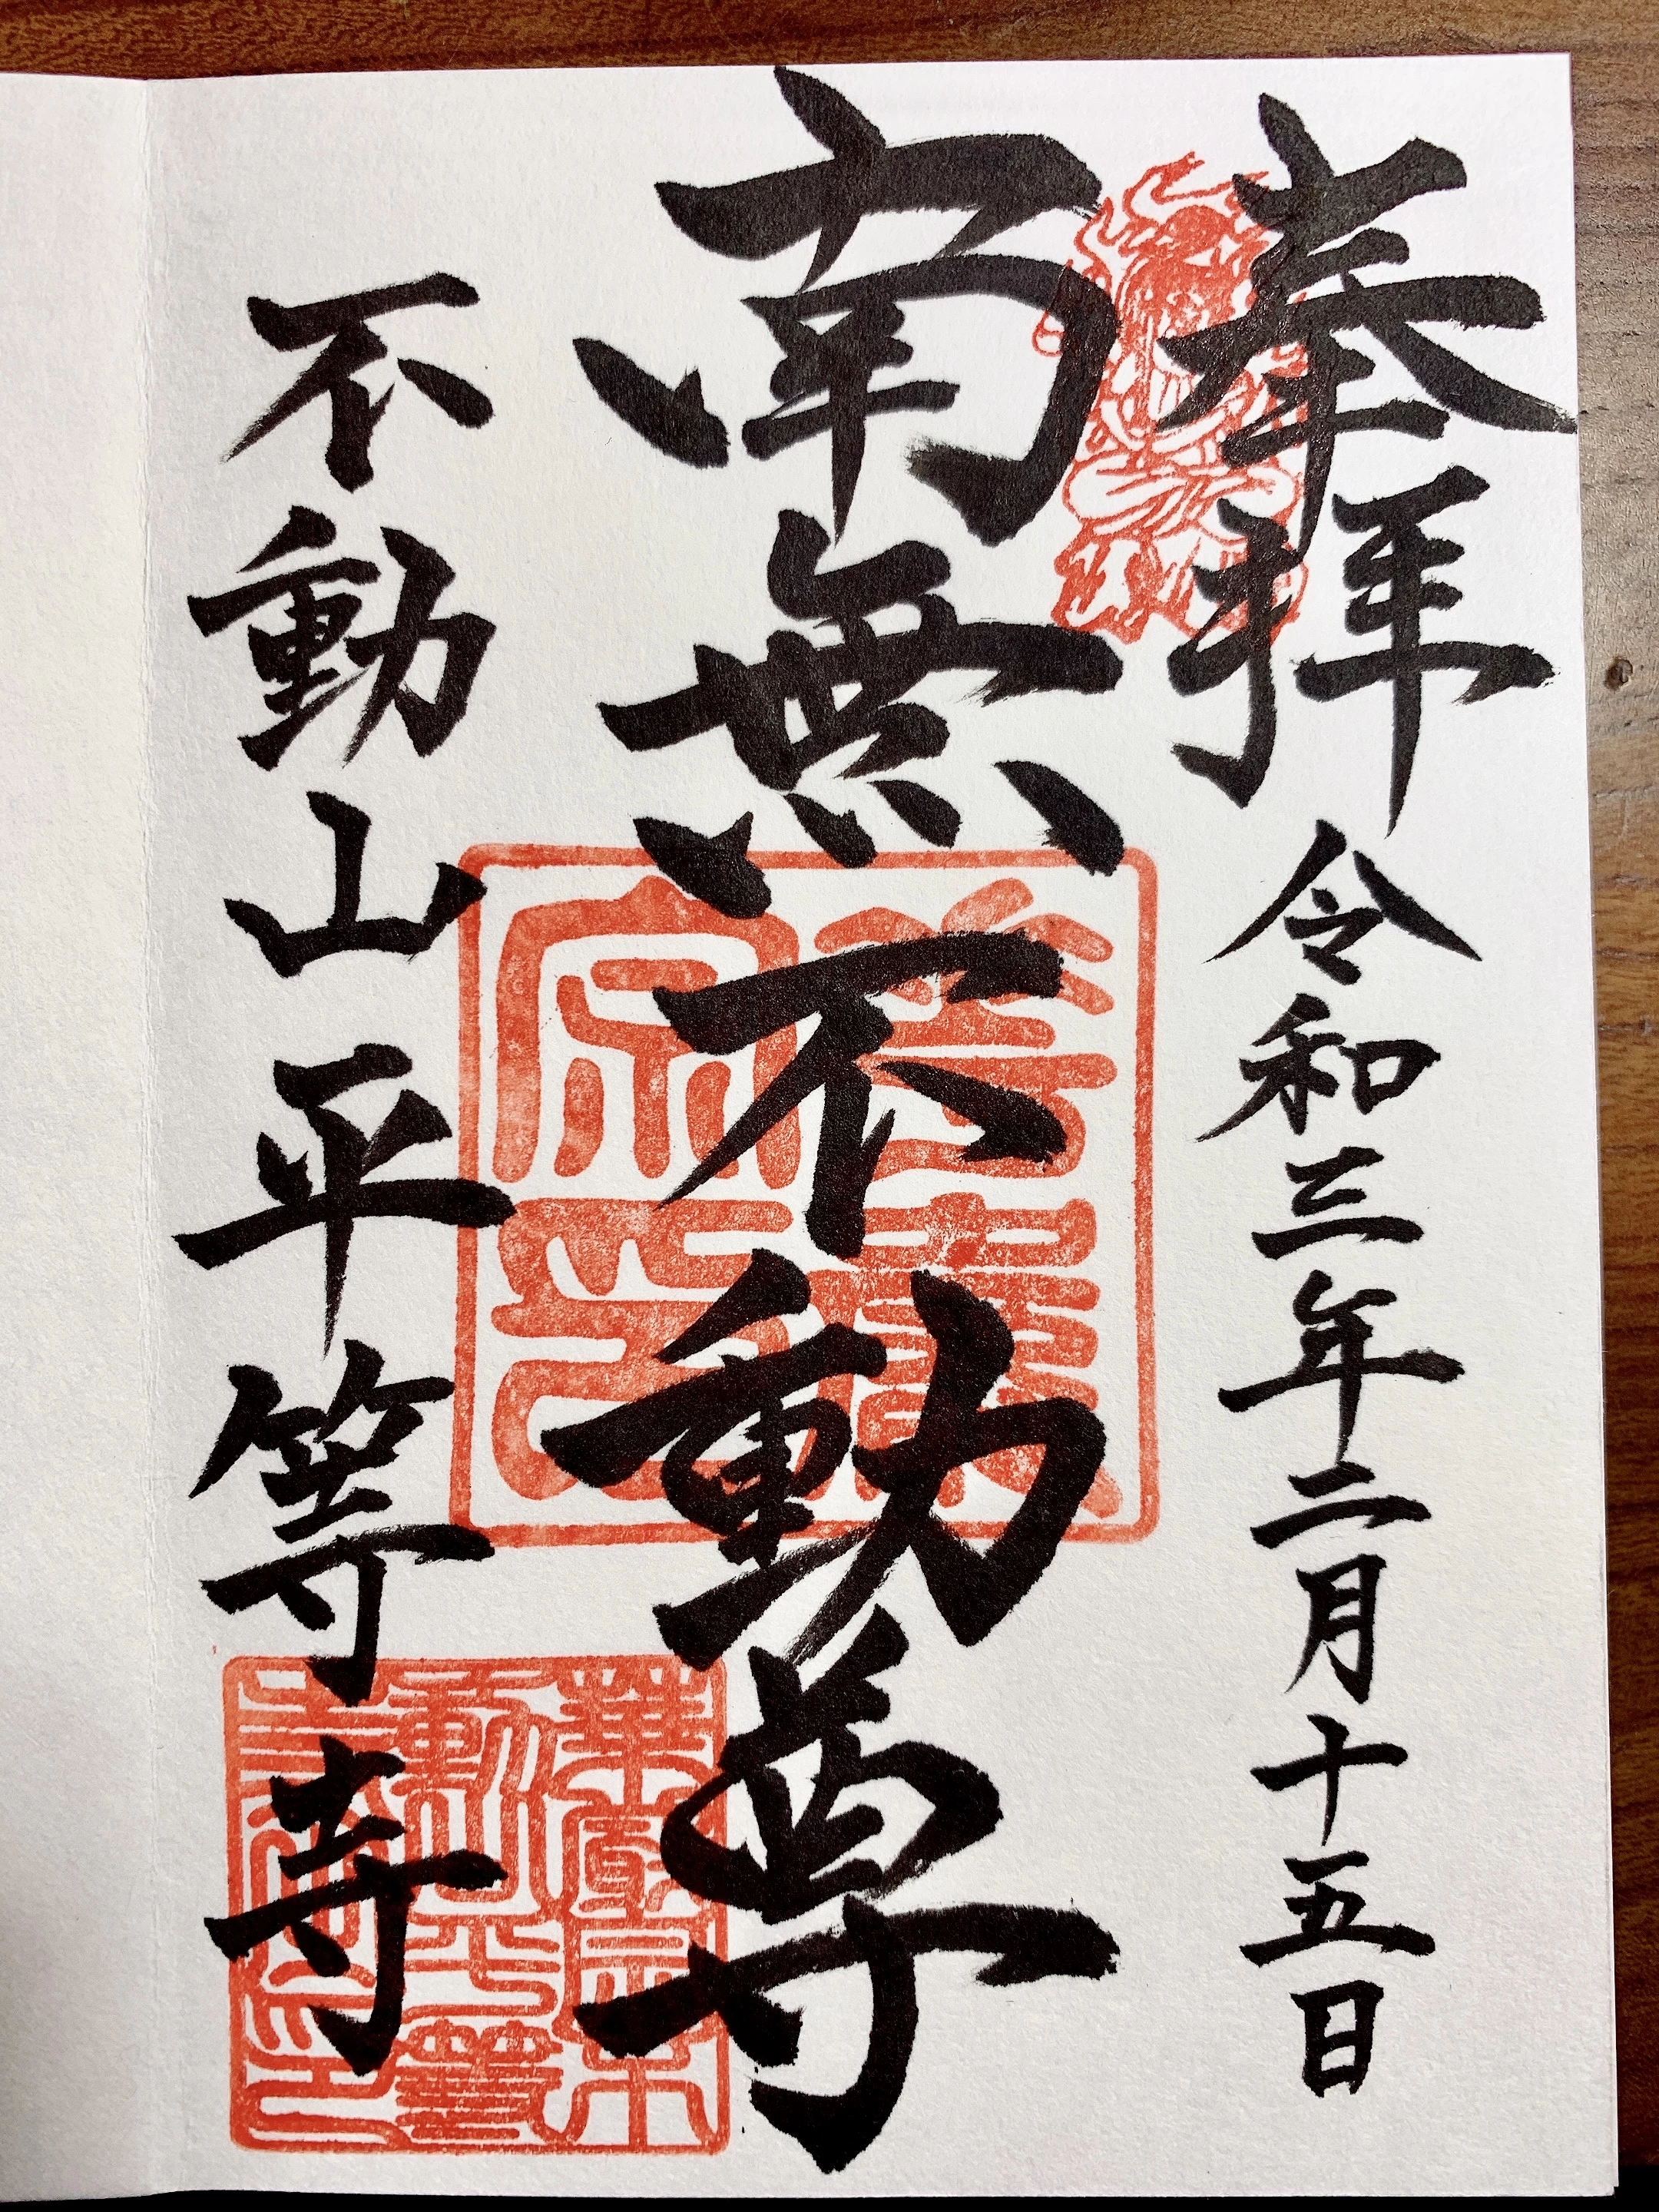 奉拝 令和三年二月十五日
南無不動尊
不動山平等寺